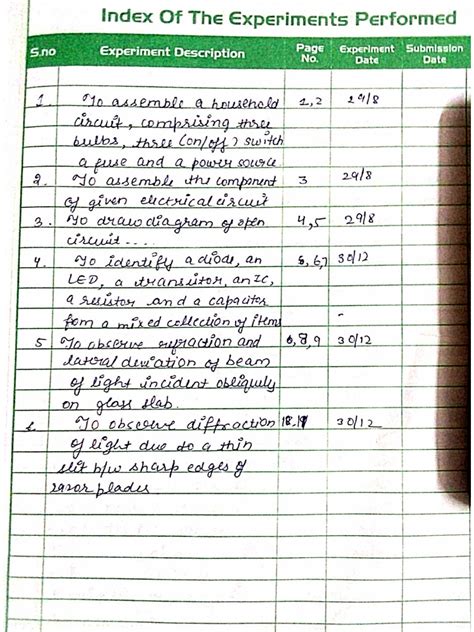 Index Of The Experiments Performed
S.no Experiment Description Page No. Experiment Date Submission Date
1. To assemble a household 1,2 29/8
circuit, comprising three
bulbs, three (on/off) switch
a fuse and a power source
2. To assemble the component 3 29/8
of given electrical circuit
3. To draw diagram of open 4,5 29/8
circuit....
4. To identify a diode, an 5,6,7 30/12
LED, a transistor, an IC,
a resistor and a capacitor
from a mixed collection of items
5 To observe refraction and 8,9 30/12
lateral deviation of beam
of light incident obliquely
on glass slab.
To observe diffraction 30/12
of light due to a thin
slit b/w sharp edges of
razor plades